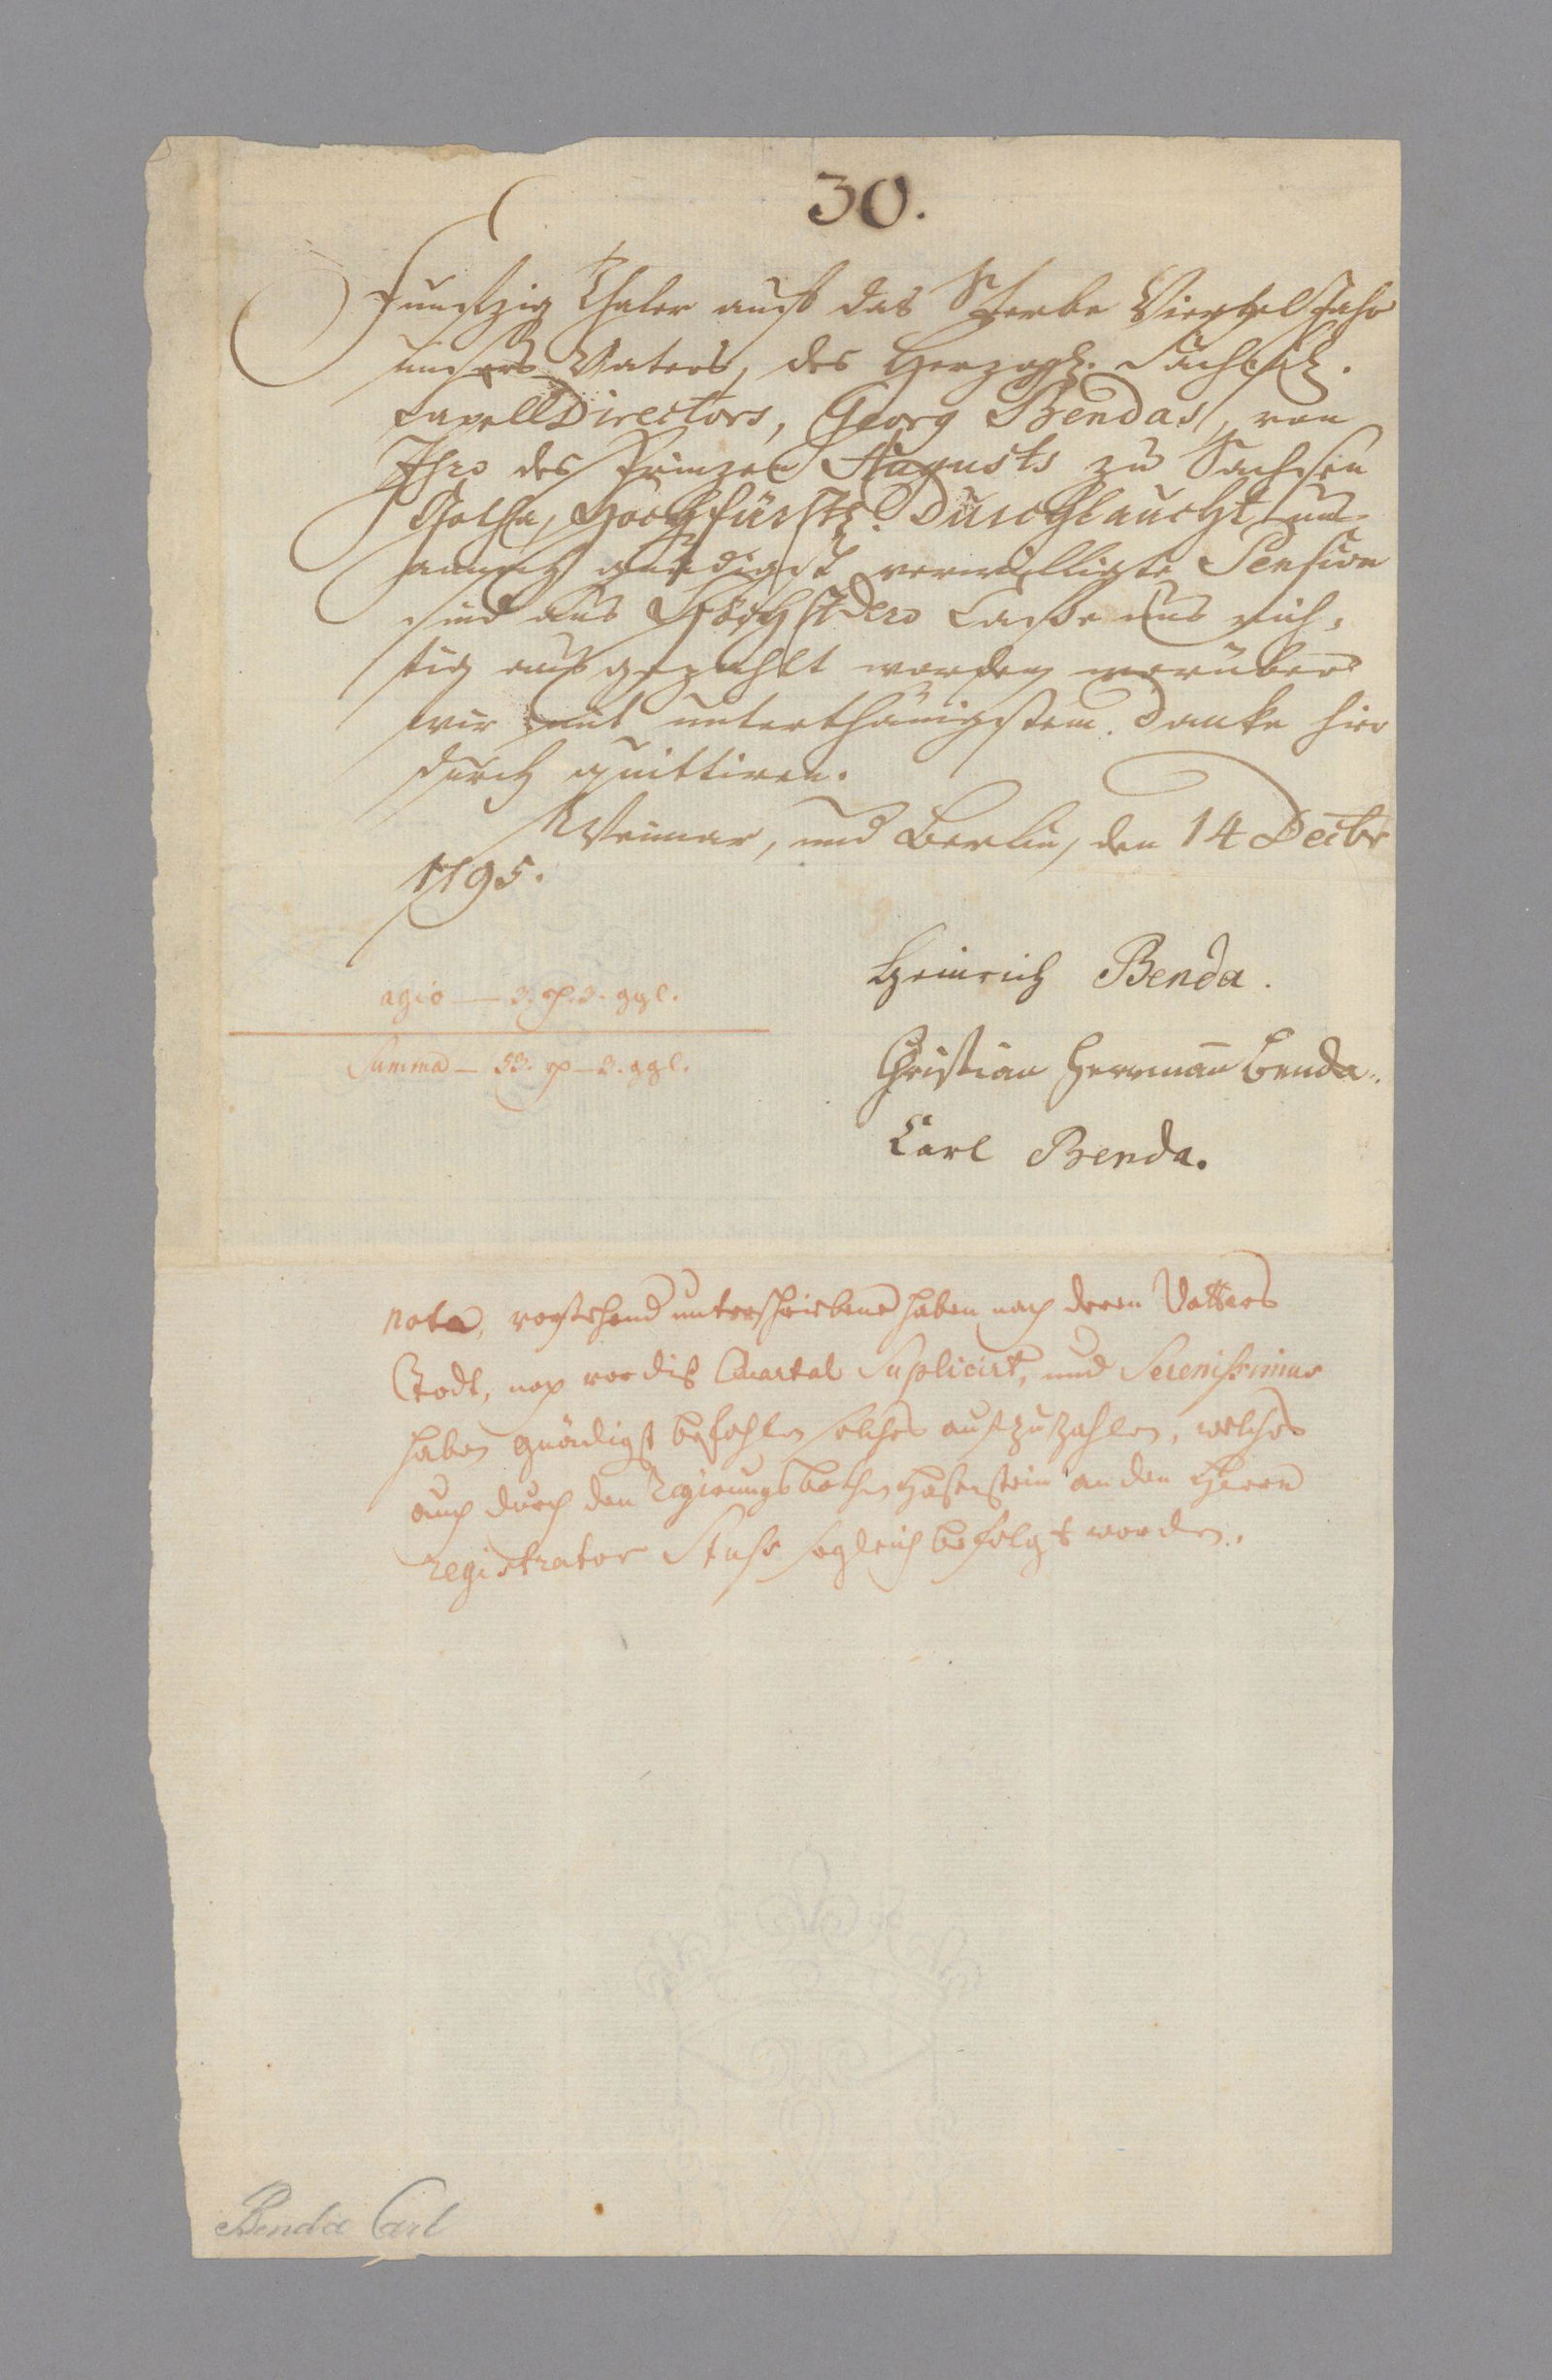 30.
Funfzig Thaler auf das Sterbe Viertel Jahr
unsers Vaters, des Herzogl. Sächsisch.
CapellDirectors, Georg Bendas, von
Ihro des Prinzen Augusts zu Sachsen
Gotha, Hochfürstl. Durchlaucht, uns
gnädigst verwilligte Pension
sind aus Höchstdero Casse uns rich-
tig ausgezahlt worden worüber
wir mit unterthänigstem Danke hier
durch quittiren.
Weimar, und Berlin, den 14 Decbr
1795.
Heinrich Benda.
agio — 3. rh. 3. ggl.
Summa — 53. rh — 3. ggl.
Christian Hermann Benda.
Carl Benda.
Nota, vorstehend unterschriebene haben nach deren Vatters
Todt, noch vor dis Quartal Suplicirt, und Serenissimus
haben gnädigst befohlen solches auszuzahlen, welches
auch durch den Regierungsbothen Haserstein an den Herrn
Registrator sogleich befolgt worden.
Benda Carl